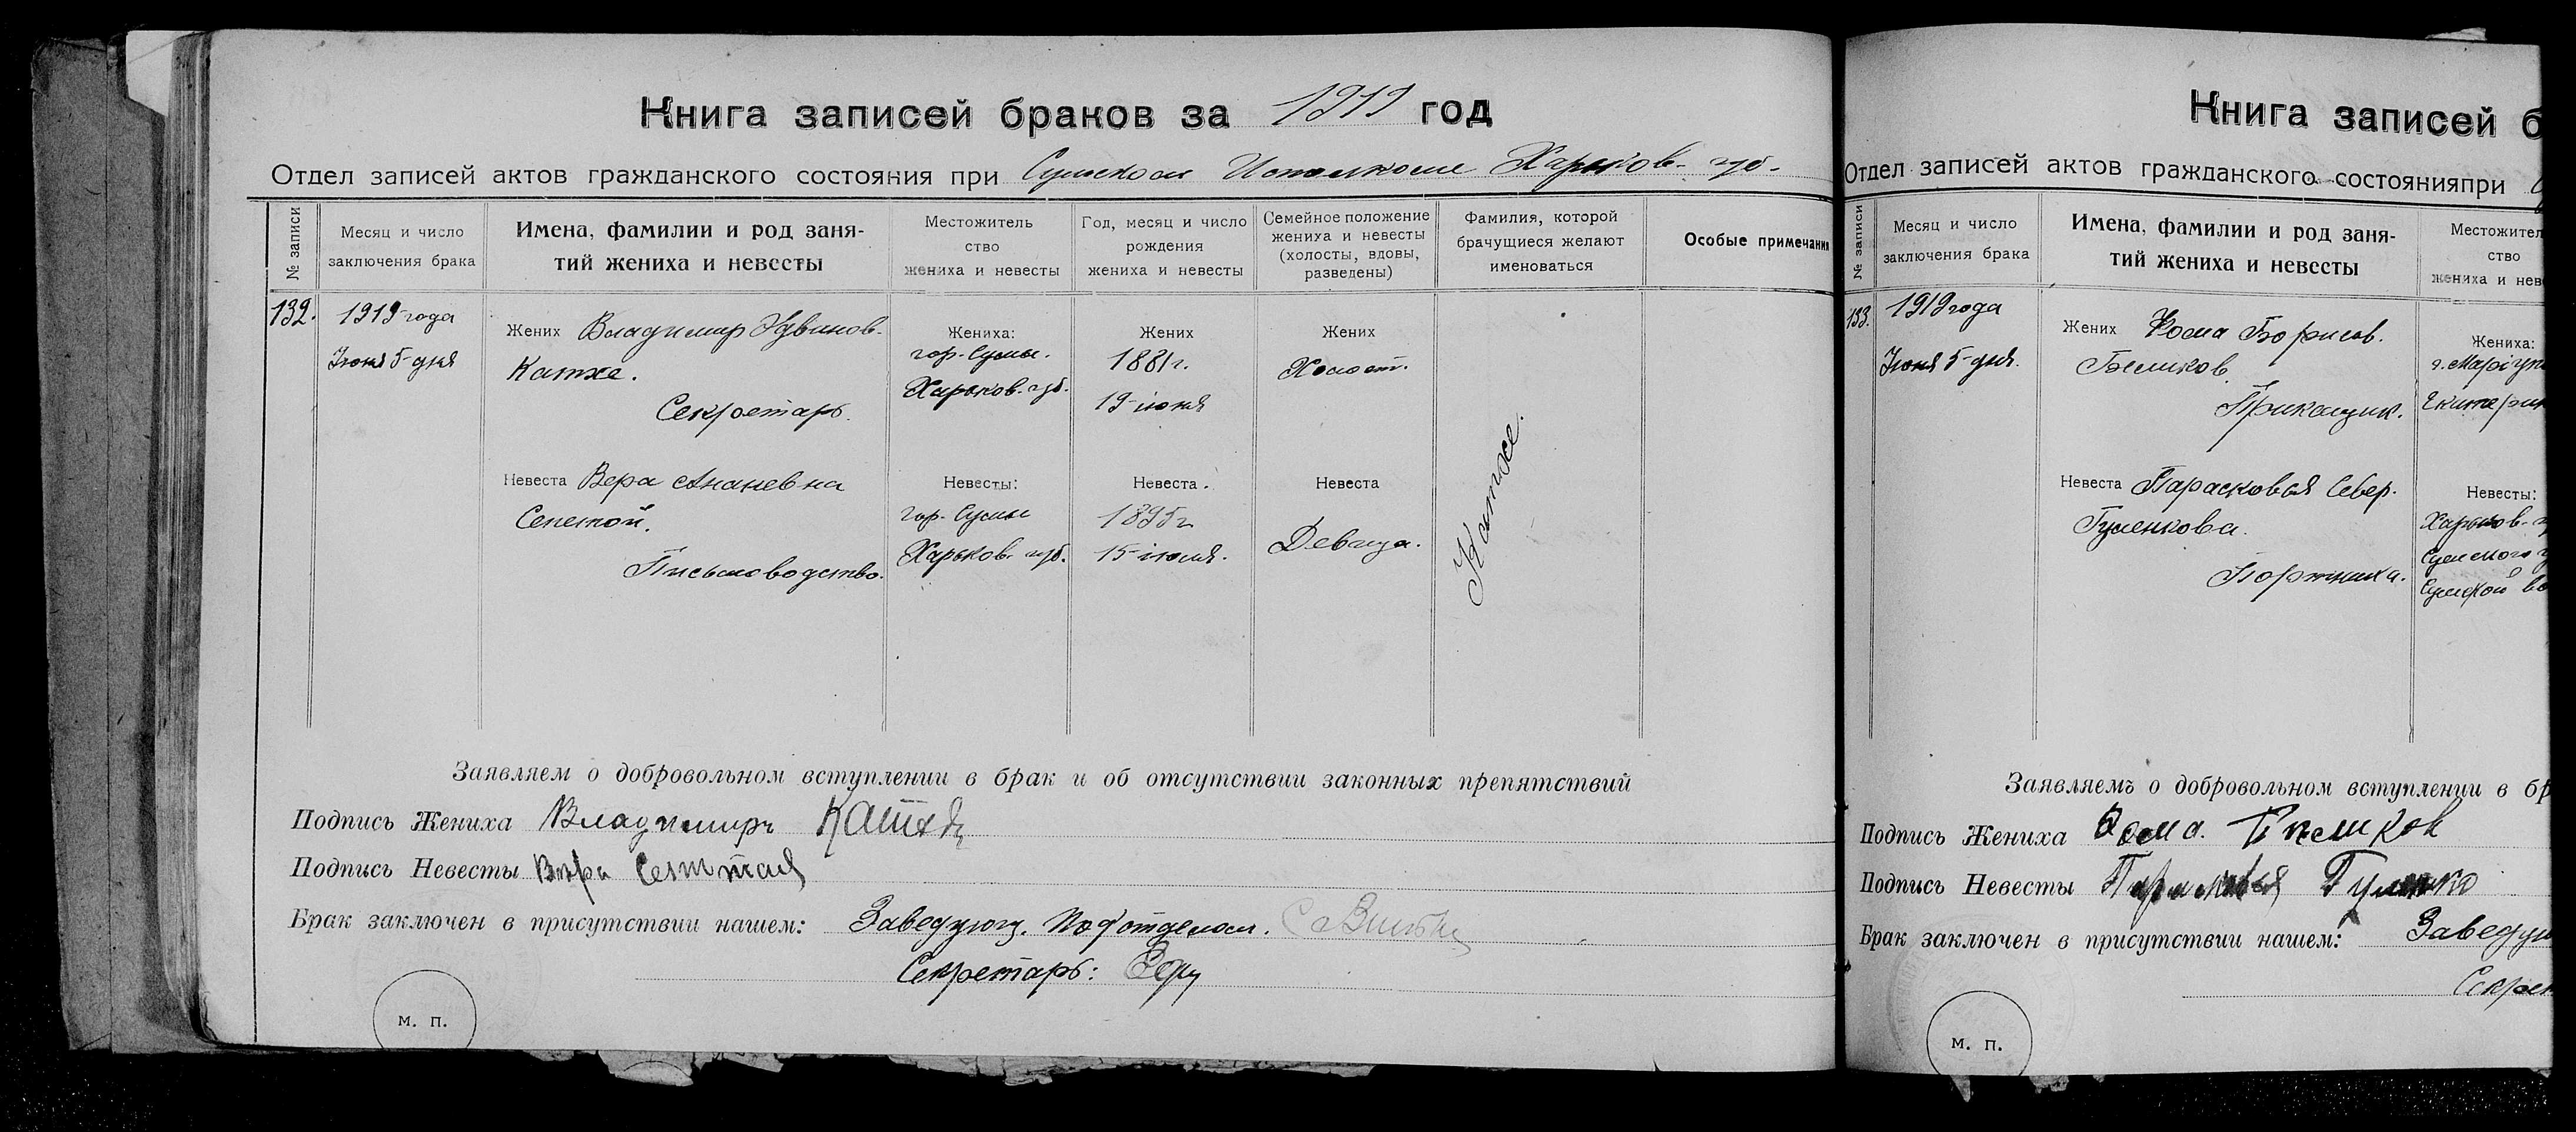 Книга записей браков за 1919 год
Отдел записей актов гражданского состояния при Сумском Исполкоме Харьков. губ.
№ записи
Месяц и число
заключения брака
Имена, фамилии и род заня-
тий жениха и невесты
Местожитель
ство
жениха и невесты
Год, месяц и число
рождения
жениха и невесты
Семейное положение
жениха и невесты
(холосты, вдовы,
разведены)
Фамилия, которой
брачущиеся желают
именоваться
Особые примечания
132.
1919 года
Июня 5 дня
Жених Владимир
Катхе.
Секретарь.
Жениха:
гор. Сумы.
Харьков. губ.
Жених
1881 г.
19 июня
Жених
Холост.
Катхе.
Невеста Вера Ананевна
Письмоводство.
Невесты:
гор. Сумы
Харьков. губ.
Невеста.
1895 г.
15 июля.
Невеста
Девица.
Заявляем о добровольном вступлении в брак и об отсутствии законных препятствий
Подпись Жениха Владимиръ
Подпись Невесты Вѣра
Брак заключен в присутствии нашем: Заведующ. Подотделом.
Секретарь:
м. п.
Книга записей б
Отдел записей актов гражданского состоянияпри
№ записи
Месяц и число
заключения брака
Имена, фамилии и род заня-
тий жениха и невесты
Местожител
ство
жениха и нев
133.
1919 года
Июня 5 дня.
Жених Фома Борисов.
Беликов.
Приказчик.
Жениха:
Невеста Парасковья Север.
Гуленкова.
Портниха.
Невесты:
Харьков.
Сумского
Сумской во
Заявляемъ о добровольном вступлении в бр
Подпись Жениха
Подпись Невесты
Брак заключен в присутствии нашем: Заведую
Секрет
м. п.